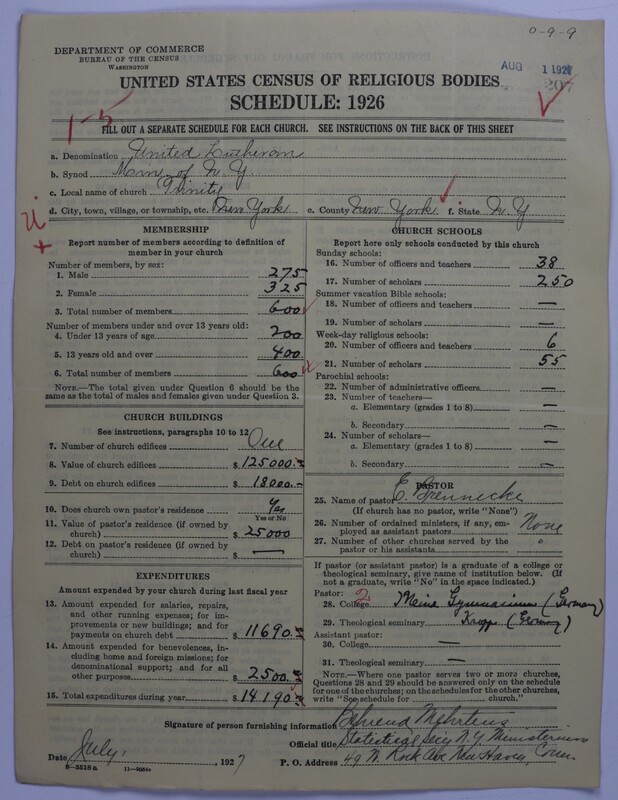 0-9-9
DEPARTMENT OF COMMERCE
BUREAU OF THE CENSUS
WASHINGTON
AUG 1 1927
207
UNITED STATES CENSUS OF RELIGIOUS BODIES
SCHEDULE: 1926
1-5
FILL OUT A SEPARATE SCHEDULE FOR EACH CHURCH. SEE INSTRUCTIONS ON THE BACK OF THIS SHEET
a. Denomination United Lutheran
b. Synod Min of N. Y.
c. Local name of church Trinity
d. City, town, village, or township, etc. New York e. County New York f. State N. Y
MEMBERSHIP
Report number of members according to definition of member in your church
Number of members, by sex:
1. Male 275
2. Female 325
3. Total number of members 600
Number of members under and over 13 years old:
4. Under 13 years of age 200
5. 13 years old and over 400
6. Total number of members 600
NOTE.—The total given under Question 6 should be the same as the total of males and females given under Question 3.
CHURCH BUILDINGS
See instructions, paragraphs 10 to 12
7. Number of church edifices One
8. Value of church edifices $125000.
9. Debt on church edifices $18000.—
10. Does church own pastor's residence Yes
Yes or No
11. Value of pastor's residence (if owned by church) $25000
12. Debt on pastor's residence (if owned by church) $ —
EXPENDITURES
Amount expended by church during last fiscal year
13. Amount expended for salaries, repairs, and other running expenses; for improvements or new buildings; and for payments on church debt $11690.
14. Amount expended for benevolences, including home and foreign missions; for denominational support; and for all other purposes $2500.
15. Total expenditures during year $14190
CHURCH SCHOOLS
Report here only schools conducted by this church
Sunday schools:
16. Number of officers and teachers 38
17. Number of scholars 250
Summer vacation Bible schools:
18. Number of officers and teachers —
19. Number of scholars —
Week-day religious schools:
20. Number of officers and teachers 6
21. Number of scholars 55
Parochial schools:
22. Number of administrative officers —
23. Number of teachers—
a. Elementary (grades 1 to 8) —
b. Secondary —
24. Number of scholars—
a. Elementary (grades 1 to 8) —
b. Secondary —
PASTOR
25. Name of pastor E. Brennecke
(If church has no pastor, write "None")
26. Number of ordained ministers, if any, employed as assistant pastors None
27. Number of other churches served by the pastor or his assistants "
If pastor (or assistant pastor) is a graduate of a college or theological seminary, give name of institution below. (If not a graduate, write "No" in the space indicated.)
Pastor: 2
28. College Gymnasium (Germany)
29. Theological seminary Kropp (Germany)
Assistant pastor:
30. College —
31. Theological seminary —
NOTE.—Where one pastor serves two or more churches, Questions 28 and 29 should be answered only on the schedule for one of the churches; on the schedules for the other churches, write "See schedule for church."
Signature of person furnishing information Behrend Mehrtens
Official title Statistical Secy N.Y. Ministerium
Date July, , 1927 P. O. Address 49 W. Rock Ave New Haven, Conn.
8-5518a 11-9034